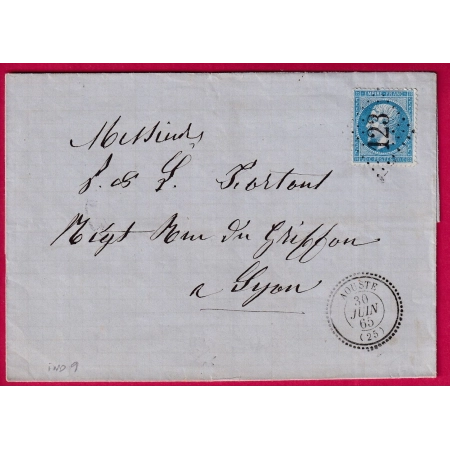 EMPIRE FRANC
123
Messieurs
J. et L. Tortont
Négt Rue du Griffon
a Lyon
AOUSTE
30
JUIN
65
(25)
IND 9